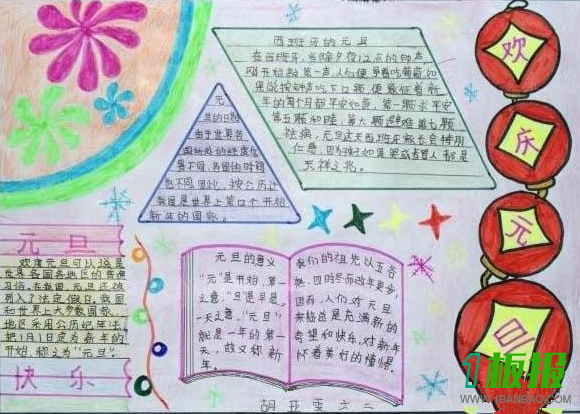 西班牙的元旦
在西班牙,当除夕夜12点的钟声
刚开始敲第一声,人们便争着吃葡萄,如
果能按钟声吃下12颗,便象征着新
年的每个月都平安如意。第一颗求平安
第五颗和睦,第六颗避难,第七颗
祛病,元旦这天西班牙家长会特别
仁慈,因为孩子如骂架或者哭人都是
不祥之兆。
元
旦的日期
由于世界各
国所处的经度位
置不同,各国的时间
也不同,因此,按公历计
我国是世界上第12个开始
新年的国家。
元旦
欢度元旦可以说是
世界各国各地区的普遍
习俗,在我国,元旦还被
列入了法定假日,我国
和世界上大多数国家、
地区采用公历纪年法,
把1月1日定为新年的
开始,称之为“元旦”。
快乐
元旦的意义
“元”是开始,第一
之意,“旦”是早晨,
一天之意,“元旦”
就是一年的第一
天,故又称新
年。
我们的祖先以五谷
四时冬而改年更岁,
因而,人们对元旦
来临总是充满新的
希望和快乐,对新年
怀着美好的憧憬。
欢
庆
元
旦
1板报
WWW.1BANBAO.COM